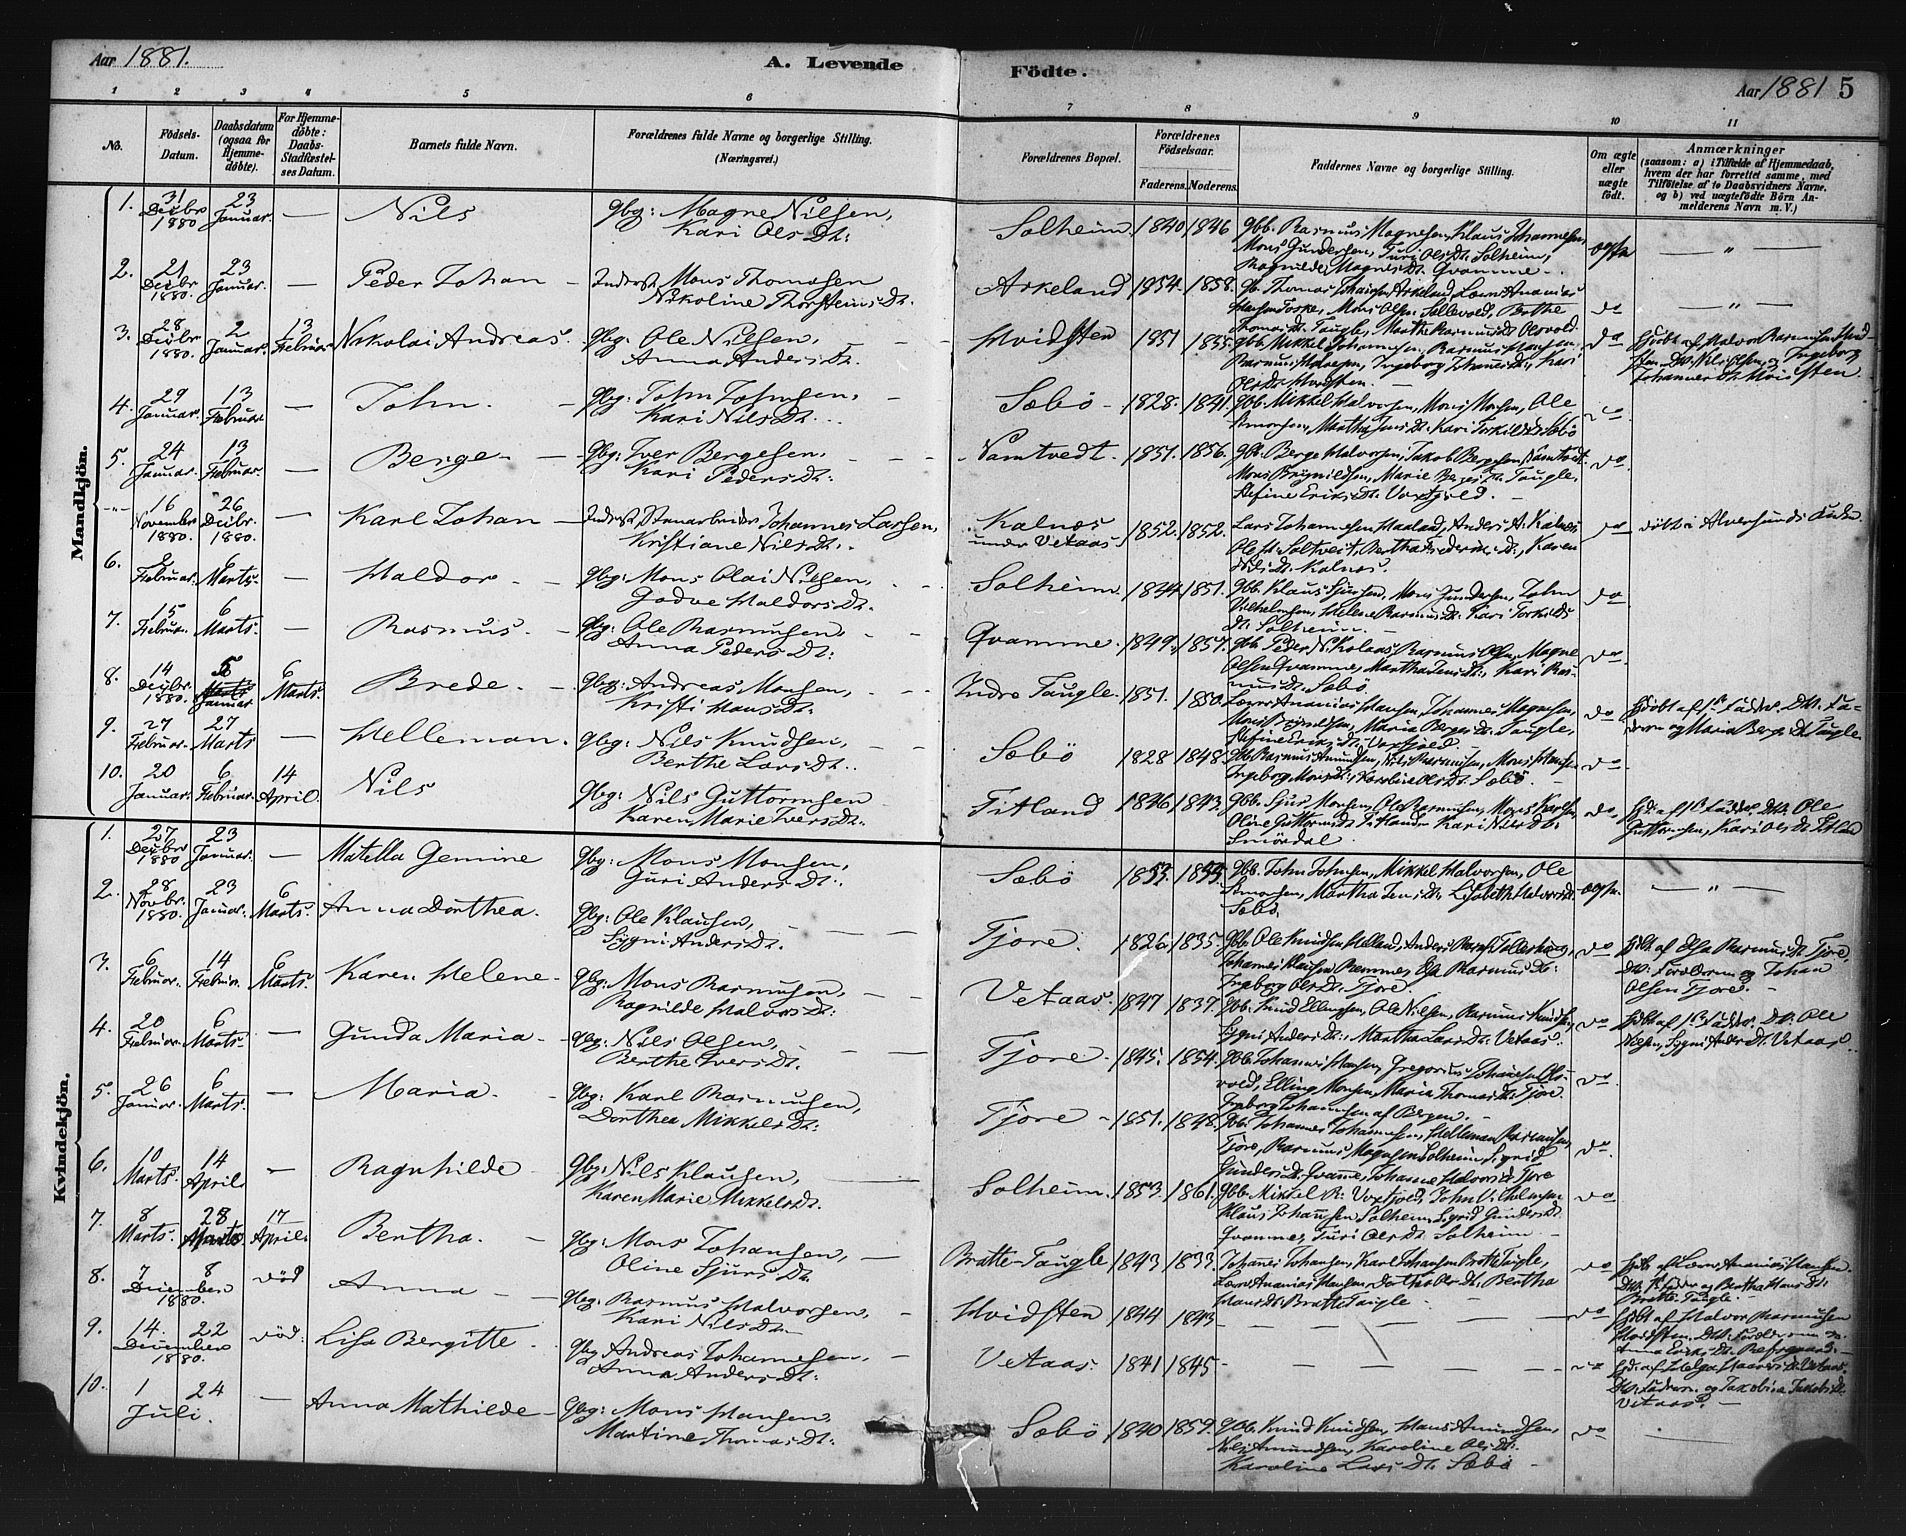 Aar 1881.
A. Levende Födte.
Aar 1881 5
1 2 3 4 5 6 7 8 9 10 11
No.
Födsels-
Datum.
Daabsdatum
(ogsaa for
Hjemme-
döbte).
For Hjemme-
döbte:
Daabs-
Stadfæstel-
ses Datum.
Barnets fulde Navn.
Forældrenes fulde Navne og borgerlige Stilling.
(Næringsvei.)
Forældrenes Bopæl.
Forældrenes
Födselsaar.
Faderens. Moderens.
Faddernes Navne og borgerlige Stilling.
Om ægte
eller
uægte
födt.
Anmærkninger
(saasom: a) i Tilfælde af Hjemmedaab,
hvem der har forrettet samme, med
Tilföielse af to Daabsvidners Navne,
og b) ved uægtefödte Börn An-
melderens Navn m. V.)
Mandkjön.
1. 31 Decbr 1880 23 Januar. — Nils Gbg: Magne Nilsen, Kari Olsdt: Solheim. 1840 1846 gbb. Rasmus Magnesen, Klaus Johannesen,
Mons Gundersen, Turi Olsdt. Solheim,
Ragnilde Magnesdt. Qvamme. ægte — " —
2. 21 Decbr 1880. 23 Januar. — Peder Johan — Inderst Mons Thomasen Nikoline Thorsteinsdt. Askeland 1854. 1858. gb. Thomas Johansen Askeland, Lærer Ananias
Hansen Mons Olsen Berthe
Thomasdt. Taugle, Marthe Rasmusdt. do — " —
3. 28 Decbr 1880. 2 Januar. 13 Februar. Nikolai Andreas. gbg: Ole Nilsen, Anna Andersdt. Hvidsten 1851 1855. gbb. Mikkel Johannesen, Rasmus Hansen,
Rasmus Halvorsen, Ingeborg Johannesdt., Kari
Olsdt. Hvidsten. do Hjdöbt af Halvor Rasmusen Hvid-
sten. Dv. Nils Olsen, og Ingeborg
Johannesdt. Hvidsten.
4. 29 Januar. 13 Februar. — John. — gbg: John Johnsen, Kari Nilsdt. Sæbö — 1828. 1841. gbb. Mikkel Halvorsen, Mons Monsen, Ole
Amorsen, Martha Jensdt. Kari Torkildsdt. Sæbö do
5. 24 Januar. 13 Februar. — Berge — gbg: Iver Bergesen, Kari Pedersdt: Namtvedt. 1851. 1856. gbb. Berge Halvorsen, Jakob Bergesen, Namtvedt.
Mons Brynildsen, Marie Bergesdt. Taugle,
Stefine Eriksdt. do
—"— 16 November 1880. 26 Decbr. 1880. — Karl Johan — Inderst, Johannes Larsen, Kristiane Nilsdt. Kalnæs under Vetaas. 1852. 1852. Lars Johannesen, Haaland, Anders A. Kalnæs
Ole Soltveit, Bertha Karen
Nilsdt. Kalnæs. do döbt i Alversunds Kirke
6. 2 Februar. 6 Marts. — Haldor — gbg: Mons Olai Nilsen, Godve Haldorsdt. Solheim 1844 1851. gbb. Klaus Mons Gundersen, John
Vilhelmsen, Helene Rasmusdt. Kari Torkilds
dt. Solheim. do
7. 15 Februar. 6 Marts. — Rasmus. — gbg: Ole Rasmusen, Anna Pedersdt: Qvamme. 1849. 1857. gbb. Peder N. Kolaas, Rasmus Olsen, Magne
Olsen Qvamme, Martha Jensdt., Kari Ras-
musdt. Sæbö do
8. 14 Decbr. 1880 5 Januar 6 Marts. Brede. — gbg: Andreas Monsen, Kristi Hansdt: Indre Taugle. 1851. 1850. Lærer Ananias Hansen, Johannes Magnesen,
Mons Brynildsen, Maria Bergesdt. Taugle,
Stefine Eriksdt. do Hjdöbt af 1st Fadder. Dv. Fa-
deren og Maria Bergesdt. Taugle.
9. 27 Februar. 27 Marts — Helleman. gbg: Nils Knudsen, Berthe Larsdt.. Sæbö 1828 1848. gbb Rasmus Amundsen, Nils Rasmusen, Mons Hansen
Ingeborg Monsdt., Karoline Olsdt. Sæbö do
10. 20 Januar. 6 Februar. 14 April. Nils gbg: Nils Guttormsen Karen Marie Iversdt. Titland 1846 1843. gbb. Sjur Monsen, Ole Rasmusen, Mons Karlsen,
Oline Guttormsdt. Titland Kari Nilsdt.
Smördal. do. Hjd: af 1st Fadder. Dv. Ole
Guttormsen, Kari Olsdt. Titland
Kvindekjön.
1. 27 Decbr 1880 23 Januar. — Matella Gemine gbg: Mons Monsen, Guri Andersdt. Sæbö 1853. 1855. gbb. John Johnsen, Mikkel Halvorsen, Ole
Amorsen, Martha Jensdt. Lisabeth Halvorsdt.
Sæbö. ægte. — " —
2. 28 Novbr. 1880. 23 Januar. 6 Marts. Anna Dorthea. gbg: Ole Klausen, Sygni Andersdt. Tjore. 1826. 1835. gbb. Ole Knudsen Helland, Anders
Johannes Klausen Elsa Rasmusdt:
Ingeborg Olsdt. Tjore. do Hjdöbt af Elsa Rasmusdt. Tjore,
Dv: Forældrene og Johan
Olsen Tjore. —
3. 6 Februar. 14 Februar. 6 Marts. Karen Helene — gbg: Mons Rasmusen, Ragnilde Halvorsdt: Vetaas. 1847 1837. gbb. Knud Ellingsen, Ole Nilsen, Rasmus Knudsen,
Sygni Andersdt. Martha Larsdt. Vetaas. do Hjdöbt af 1st Fadder. Dv. Ole
Nilsen, Sygni Andersdt. Vetaas.
4. 20 Februar. 6 Marts — Gunda Maria — gbg: Nils Olsen, Berthe Iversdt. Tjore — 1845. 1854. gbb. Johannes Hansen, Gregorius Johannesen
Elling Monsen, Maria Thomasdt. Tjore
Ingeborg Johannesen af Bergen. — do
5. 26 Januar. 6 Marts. — Maria. — gbg: Karl Rasmusen, Dorthea Mikkelsdt: Tjore — 1851. 1848. gbb: Johannes Johannesen, Helleman Rasmusen,
Tjore, Rasmus Magnesen Solheim, Sigrid
Gundersdt. Qvamme, Johanne Halvorsdt Tjore do
6. 10 Marts. 14 April. — Ragnhilde — gbg: Nils Klausen, Karen Marie Mikkelsdt. Solheim. 1853. 1861. gbb. Mikkel R. John Vilhelmsen
Klaus Johannesen Solheim, Sigrid Gundersdt.
Qvamme, Turi Olsdt. Solheim. — do
7. 8 Marts. 28 Marts 17 April. Bertha. — gbg: Mons Johansen, Oline Sjursdt. Bratte-Taugle 1843 1833. Johannes Johansen, Karl Johansen Bratte Taugle,
Lærer Ananias Hansen, Dorthe Olsdt. Bertha
Hansdt. Bratte Taugle. do Hjdbt af Lærer Ananias Hansen.
Dv. Fader og Bertha Hansdt.
Bratte-Taugle. —
8. 7 8 December 1880. död Anna — — gbg: Rasmus Halvorsen, Kari Nilsdt. Hvidsten 1844 1843 — do Hjdbt af Halvor Rasmusen
Hvidsten. Dv. Forældrene og
Anna Eriksdt.
9. 14. 22 December 1880. död. Lisa Bergitte. gbg Andreas Johannesen, Anna Andersdt. Vetaas 1841 1845. — do Hjd: af Helga Haaversdt. Vetaas.
Dv: Faderen og Jakobine Jakobsdt.
Vetaas. —
10. 1 24 Juli. — Anna Mathilde — gbg: Mons Hansen, Martine Thomasdt: Sæbö 1840 1859. gbb. Knud Knudsen, Hans Amundsen,
Nils Amundsen, Karoline Olsdt.
Karoline Larsdt. Sæbö — do —